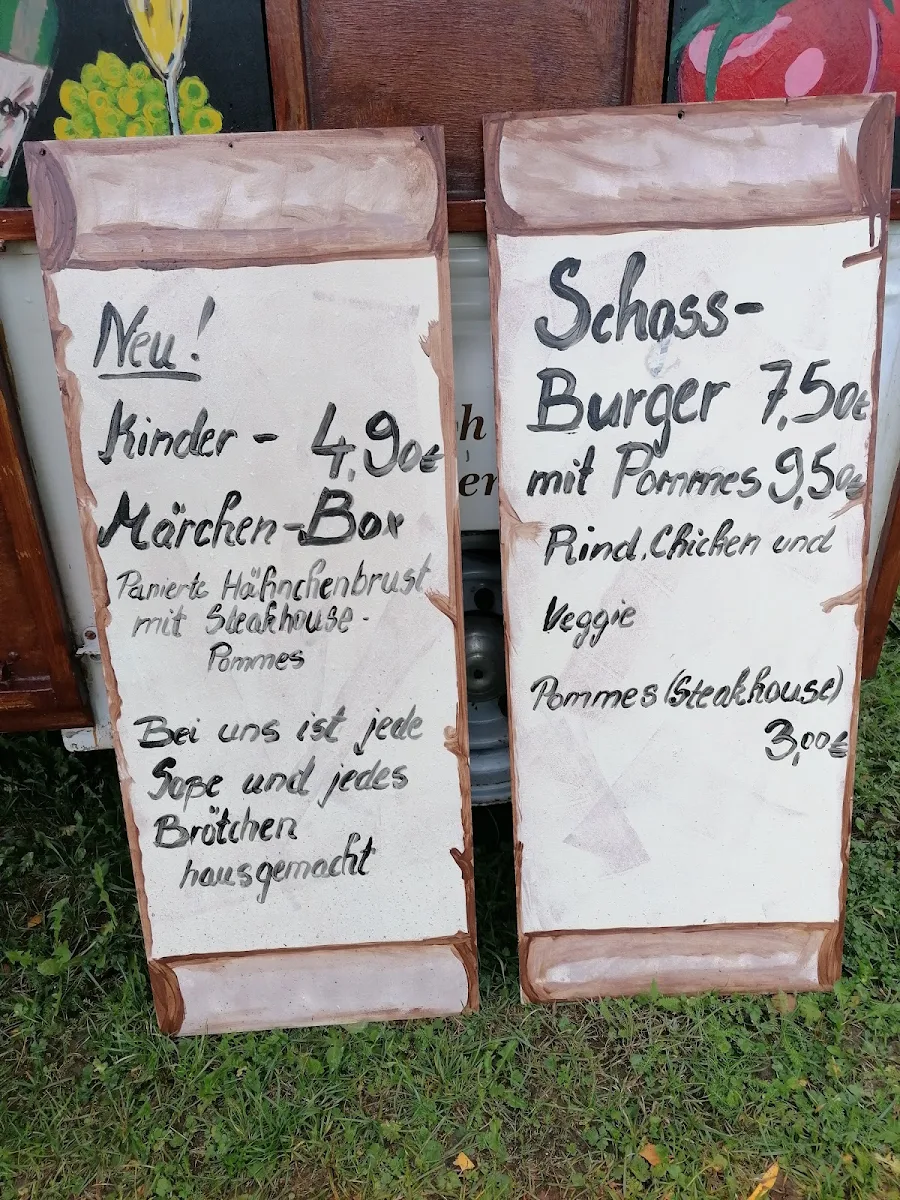 Neu!
Kinder - 4,90€
Märchen-Box
Panierte Hähnchenbrust
mit Steakhouse-
Pommes
Bei uns ist jede
Soße und jedes
Brötchen
hausgemacht
Schoss-
Burger 7,50€
mit Pommes 9,50€
Rind, Chicken und
Veggie
Pommes (Steakhouse)
3,00€